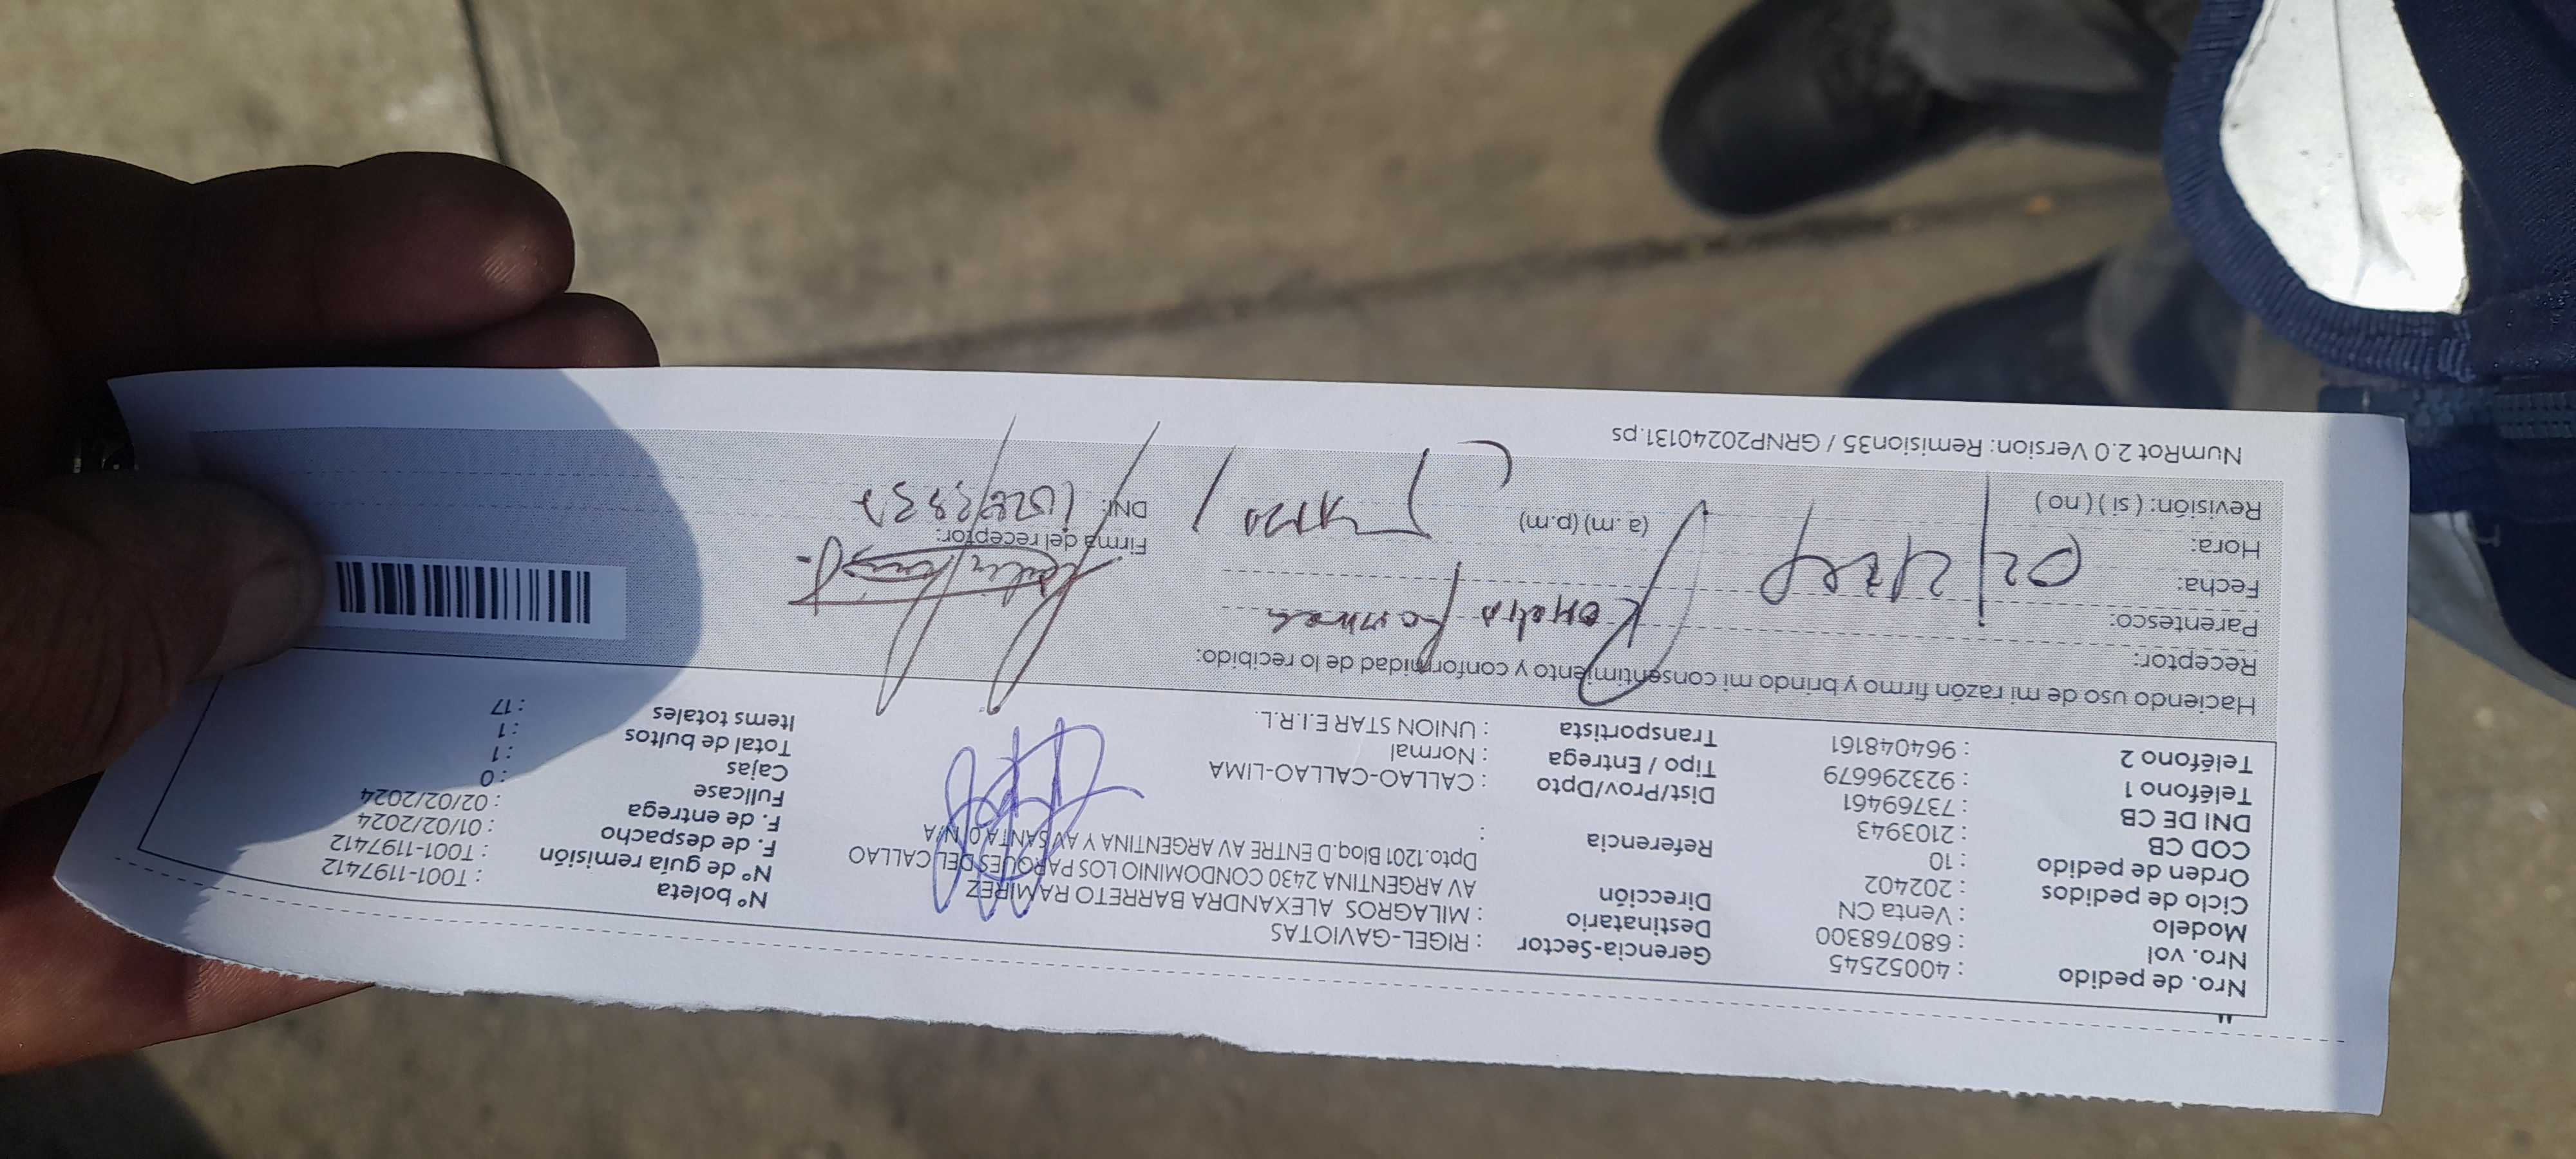 Nro. de pedido : 40052545 Gerencia-Sector : RIGEL-GAVIOTAS Nº boleta : T001-1197412
Nro. vol : 680768300 Destinatario : MILAGROS ALEXANDRA BARRETO RAMIREZ Nº de guía remisión : T001-1197412
Modelo : Venta CN Dirección AV ARGENTINA 2430 CONDOMINIO LOS PARQUES DEL CALLAO F. de despacho : 01/02/2024
Ciclo de pedidos : 202402 Dpto.1201 Bloq.D ENTRE AV ARGENTINA Y AV SANTA 0 N/A F. de entrega : 02/02/2024
Orden de pedido : 10 Referencia : Fullcase : 0
COD CB : 2103943 Dist/Prov/Dpto : CALLAO-CALLAO-LIMA Cajas : 1
DNI DE CB : 73769461 Tipo / Entrega : Normal Total de bultos : 1
Teléfono 1 : 923296679 Transportista : UNION STAR E.I.R.L. Items totales : 17
Teléfono 2 : 964048161
Haciendo uso de mi razón firmo y brindo mi consentimiento y conformidad de lo recibido:
Receptor:
Parentesco:
Fecha:
Hora: (a.m) (p.m) Firma del receptor:
Revisión: ( si ) ( no ) DNI:
NumRot 2.0 Version: Remision35 / GRNP20240131.ps